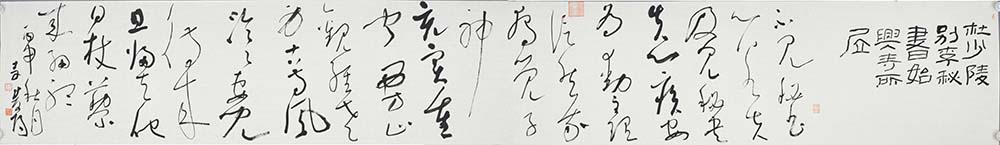 杜少陵
別李秘
書始
興寺所
居
不見秘書
心若失
及見秘書
失心疾安
為動主理
信然我
獨覺子
神
充實重
聞西方止
觀經老
身古寺風
泠泠妻兒
待米
且歸去他
日杖藜
來細聽
丙申秋月